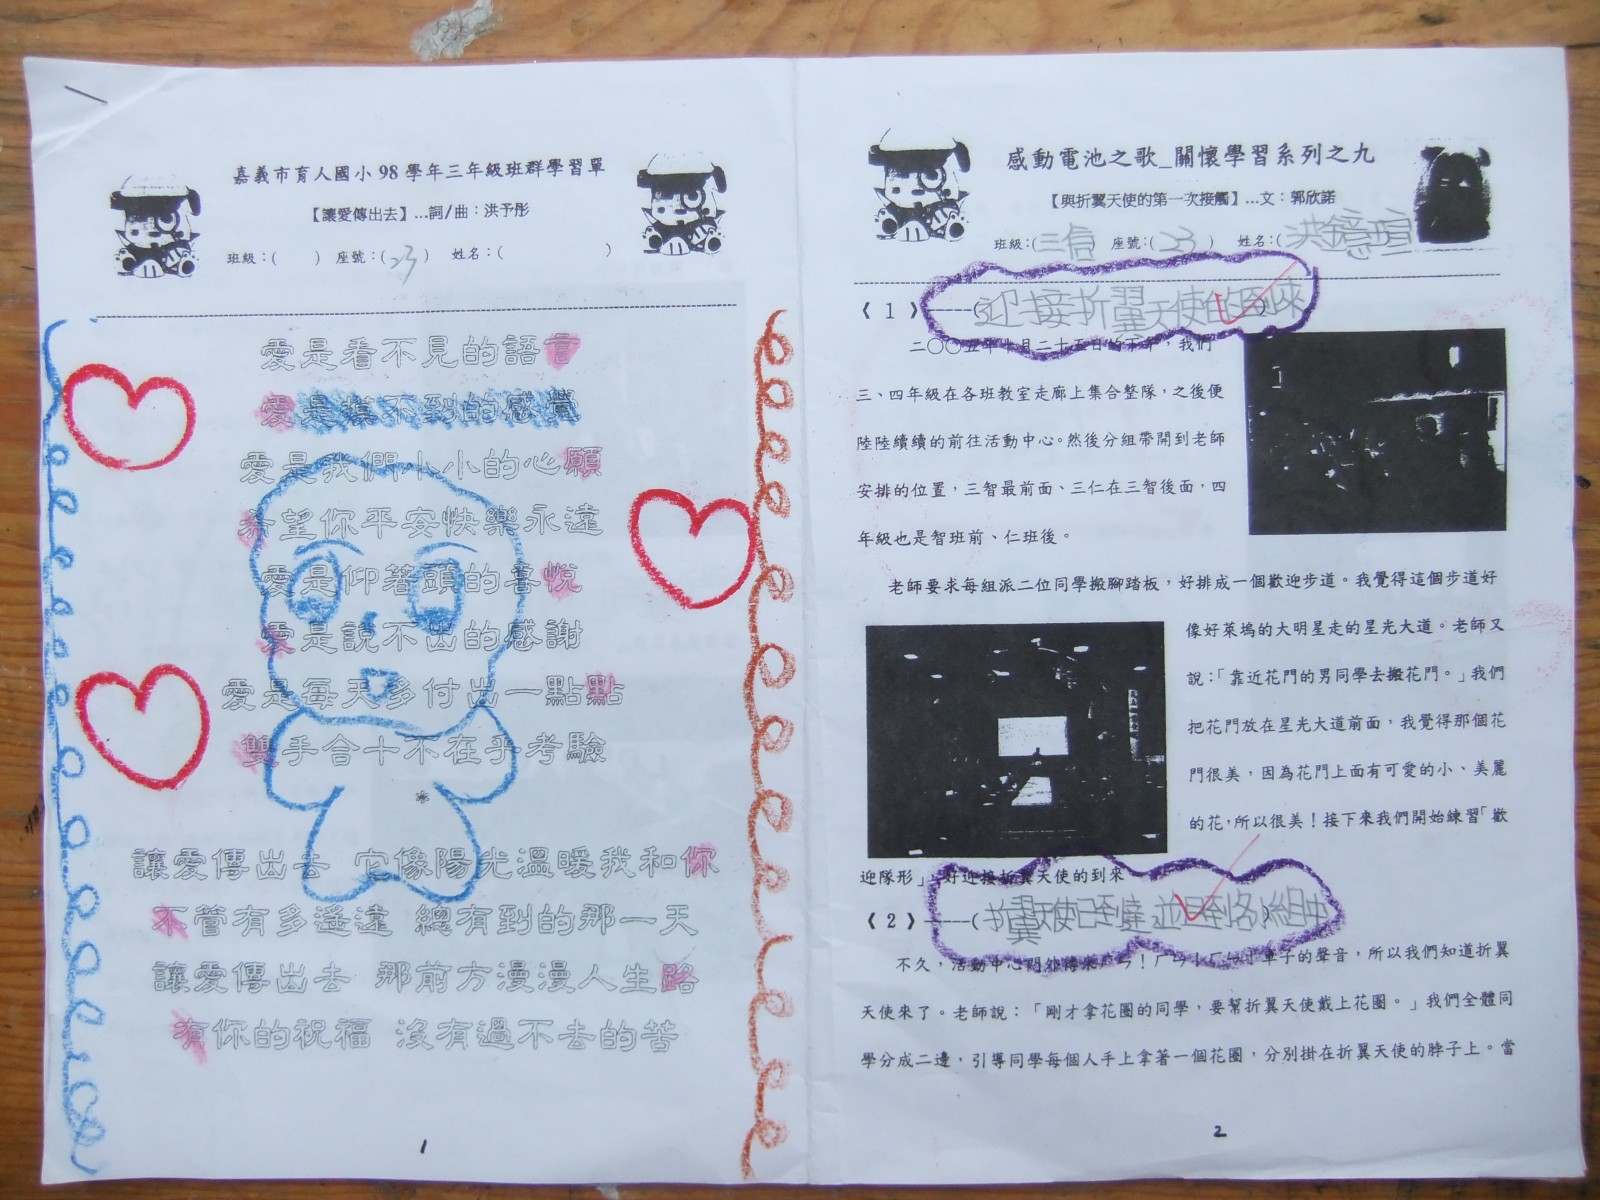 嘉義市育人國小98學年三年級班群學習單
【讓愛傳出去】…詞/曲：洪予彤
班級：(　　) 座號：(23) 姓名：(　　　　)
愛是看不見的語言
愛是摸不到的感覺
愛是我們小小的心願
希望你平安快樂永遠
愛是仰著頭的喜悅
愛是說不出的感謝
愛是每天多付出一點點
雙手合十不在乎考驗
*
讓愛傳出去 它像陽光溫暖我和你
不管有多遙遠 總有到的那一天
讓愛傳出去 那前方漫漫人生路
有你的祝福 沒有過不去的苦
1
感動電池之歌_關懷學習系列之九
【與折翼天使的第一次接觸】…文：郭欣諾
班級：(三信) 座號：(23) 姓名：(洪鐿瑄
《1》-----(迎接折翼天使的到來
二〇〇五年十月二十五日的下午，我們
三、四年級在各班教室走廊上集合整隊，之後便
陸陸續續的前往活動中心。然後分組帶開到老師
安排的位置，三智最前面、三仁在三智後面，四
年級也是智班前、仁班後。
老師要求每組派二位同學搬腳踏板，好排成一個歡迎步道。我覺得這個步道好
像好萊塢的大明星走的星光大道。老師又
說：「靠近花門的男同學去搬花門。」我們
把花門放在星光大道前面，我覺得那個花
門很美，因為花門上面有可愛的小、美麗
的花，所以很美！接下來我們開始練習「歡
迎隊形」，好迎接折翼天使的到來
《2》-----(折翼天使已到達並且到各小組中
不久，活動中心門外傳來ㄅㄣ！ㄅㄣ！車子的聲音，所以我們知道折翼
天使來了。老師說：「剛才拿花圈的同學，要幫折翼天使戴上花圈。」我們全體同
學分成二邊，引導同學每個人手上拿著一個花圈，分別掛在折翼天使的脖子上。當
2